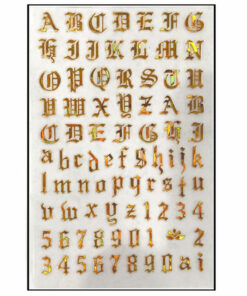 A B C D E F G
H I J K L M N
O P Q R S T U
V W X Y Z A B
C D E F G H I
a b c d e f g h i j k
l m n o p q r s t
u v w x y z 1 2 3 4
5 6 7 8 9 0 1 2
3 4 5 6 7 8 9 0 a i